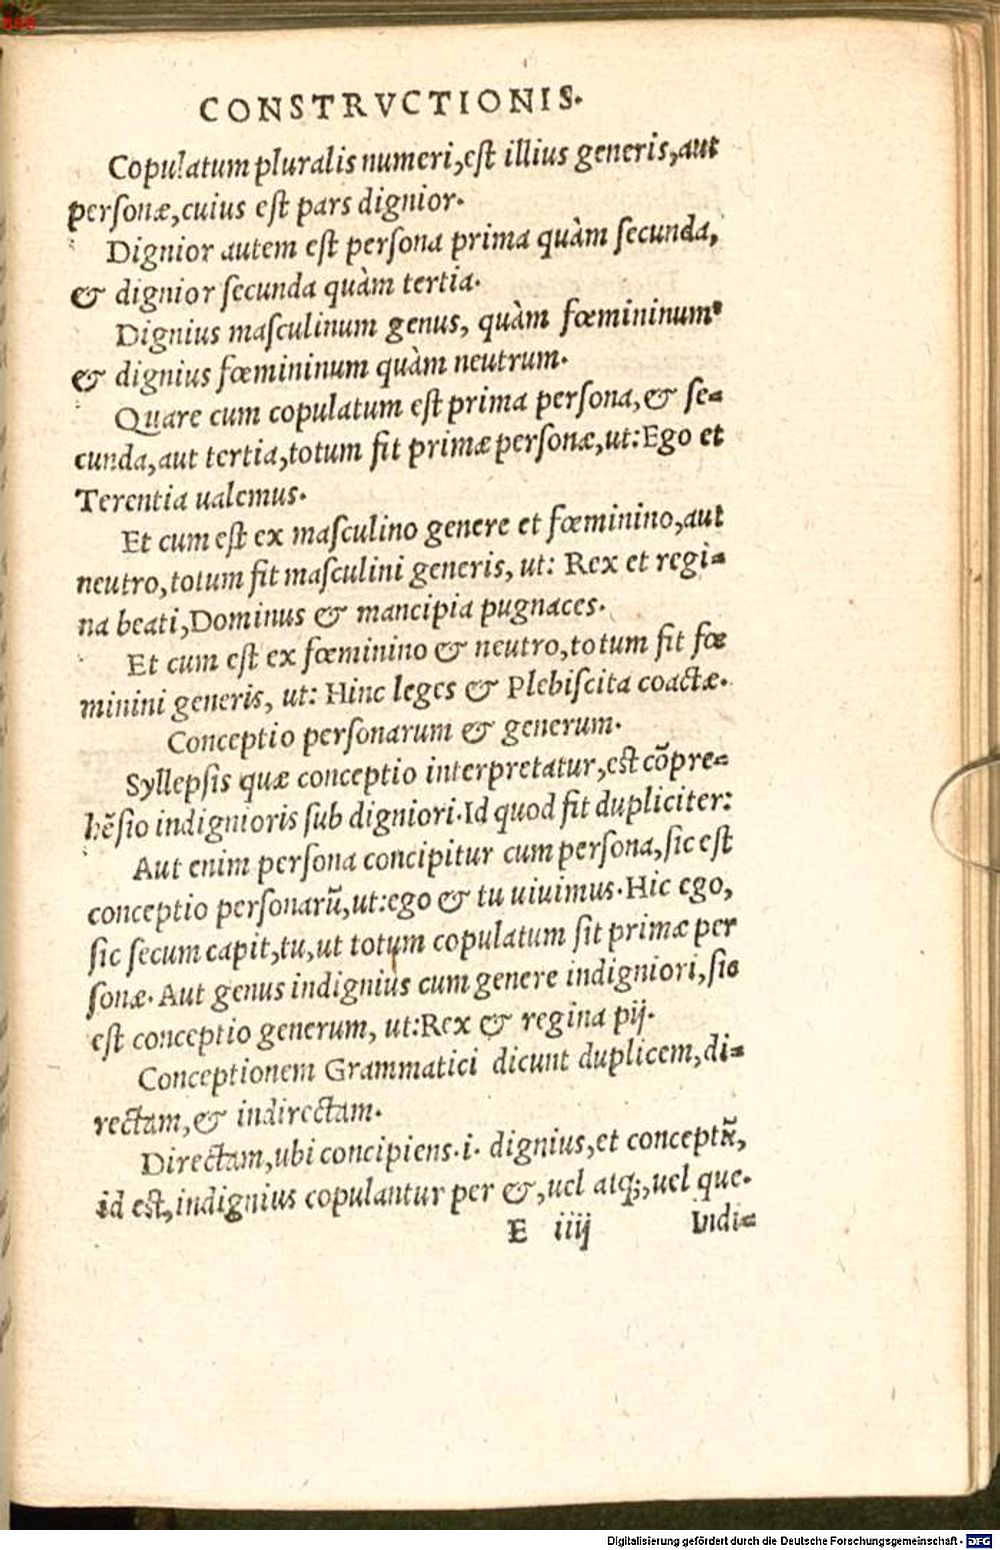 CONSTRVCTIONIS.
Copulatum pluralis numeri,eſt illius generis,aut
perſonæ,cuius eſt pars dignior.
Dignior autem eſt perſona prima quàm ſecunda,
& dignior ſecunda quàm tertia.
Dignius maſculinum genus, quàm fœmininum:
& dignius fœmininum quàm neutrum.
Quare cum copulatum eſt prima perſona,& ſe=
cunda,aut tertia,totum fit primæ perſonæ,ut:Ego et
Terentia ualemus.
Et cum eſt ex maſculino genere et fœminino,aut
neutro,totum fit maſculini generis, ut: Rex et regi=
na beati,Dominus & mancipia pugnaces.
Et cum eſt ex fœminino & neutro,totum fit fœ
minini generis, ut: Hinc leges & Plebiſcita coactæ.
Conceptio perſonarum & generum.
Syllepſis quæ conceptio interpretatur,est cõpre=
hẽſio indignioris ſub digniori.Id quod fit dupliciter:
Aut enim perſona concipitur cum perſona,ſic eſt
conceptio perſonarũ,ut:ego & tu uiuimus.Hic ego,
ſic ſecum capit,tu,ut totum copulatum ſit primæ per
ſonæ. Aut genus indignius cum genere indigniori,ſic
eſt conceptio generum, ut:Rex & regina pij.
Conceptionem Grammatici dicunt duplicem,di=
rectam,& indirectam.
Directam,ubi concipiens.i. dignius,et conceptũ,
id eſt,indignius copulantur per &,uel atq;,uel que.
E iiij Indi=
Digitalisierung gefördert durch die Deutsche Forschungsgemeinschaft - DFG